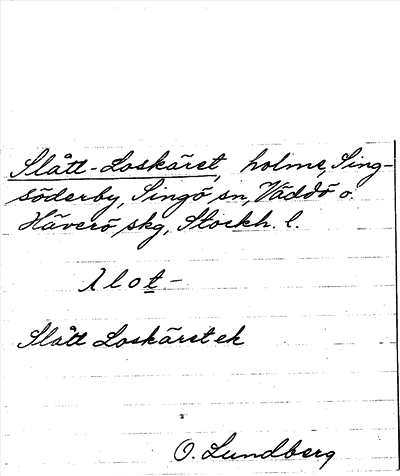 Slått-Loskäret, holme, Sing-
söderby, Singö sn, Väddö o.
Häverö skg, Stockh. l.
slot-
Slått Loskäret ek
O. Lundberg